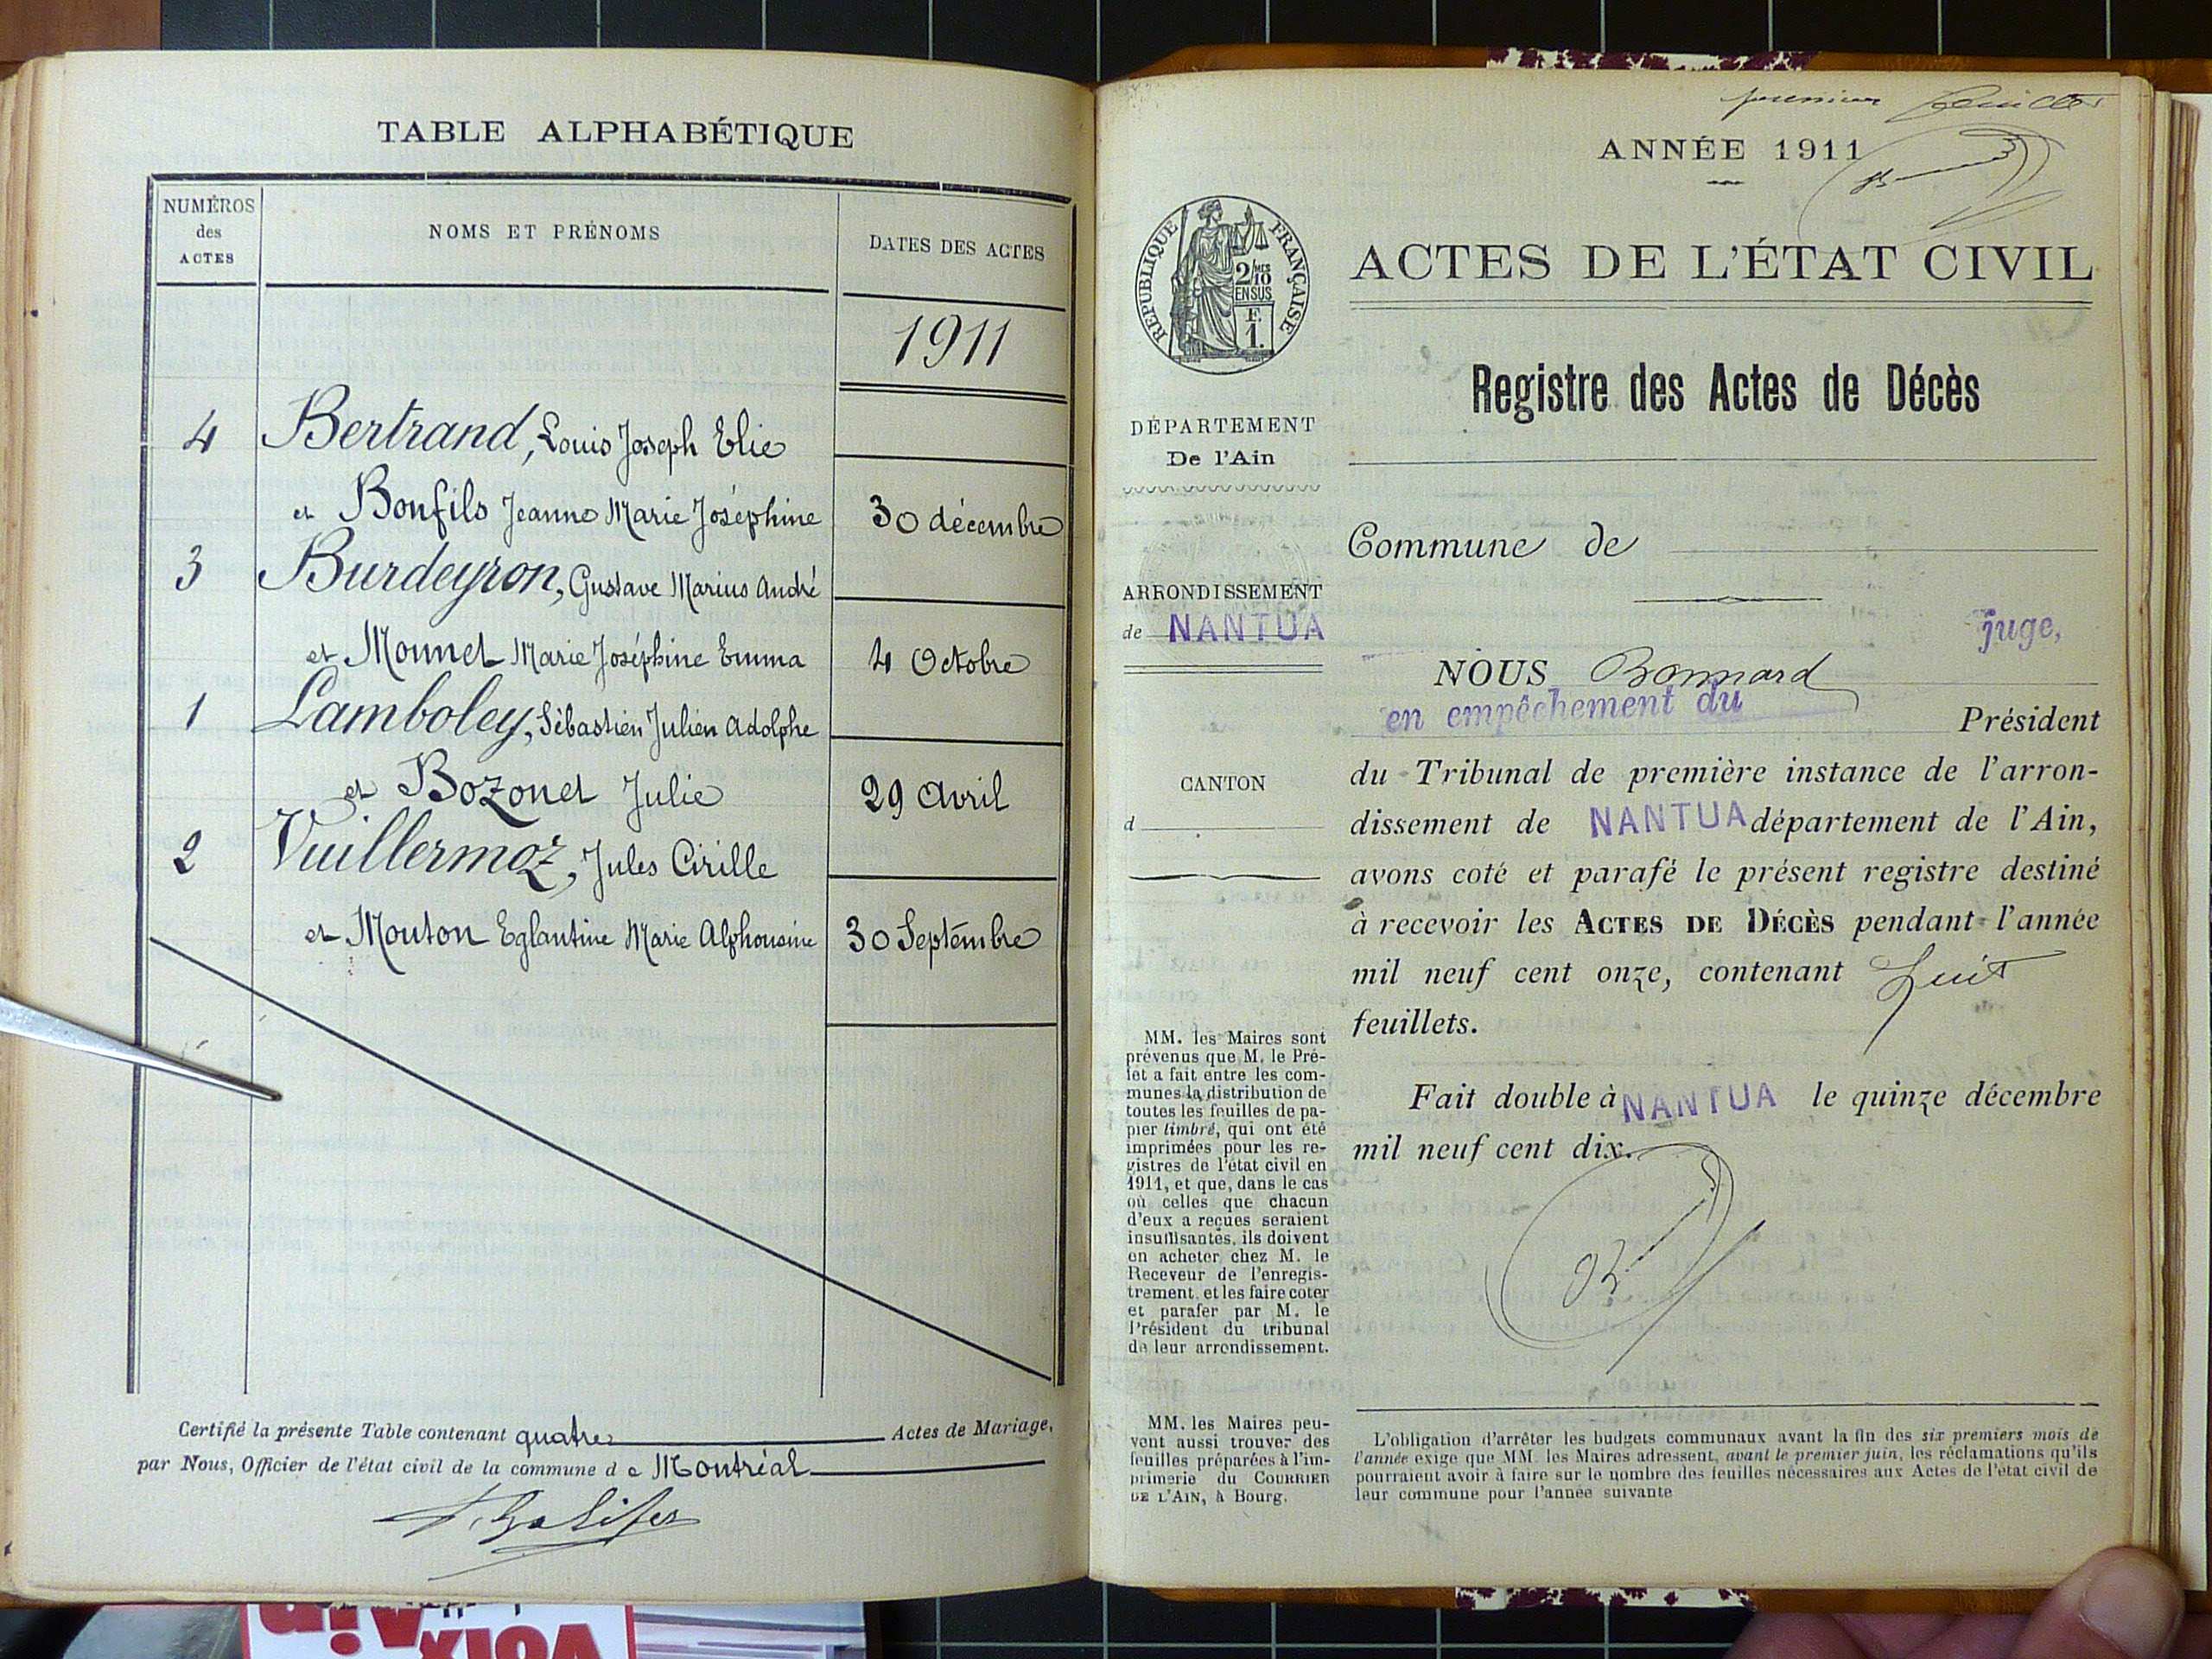 TABLE ALPHABÉTIQUE
NUMÉROS
des
ACTES
NOMS ET PRÉNOMS
DATES DES ACTES
1911
4 Bertrand, Louis Joseph Elie
et Bonfils Jeanne Marie Joséphine 30 décembre
3 Burdeyron, Gustave Marius André
et Monnet Marie Joséphine Emma 4 Octobre
1 Lamboley, Sébastien Julien Adolphe
et Bozonet Julie 29 Avril
2 Vuillermoz, Jules Cirille
et Mouton Eglantine Marie Alphonsine 30 Septembre
Certifié la présente Table contenant quatre Actes de Mariage,
par Nous, Officier de l'état civil de la commune d e Montréal
premier feuillet
ANNÉE 1911
RÉPUBLIQUE FRANÇAISE
2/10
EN SUS
F.
1.
ACTES DE L'ÉTAT CIVIL
Registre des Actes de Décès
DÉPARTEMENT
De l'Ain
ARRONDISSEMENT
de NANTUA
CANTON
d
MM. les Maires sont
prévenus que M. le Pré-
fet a fait entre les com-
munes la distribution de
toutes les feuilles de pa-
pier timbré, qui ont été
imprimées pour les re-
gistres de l'état civil en
1911, et que, dans le cas
où celles que chacun
d'eux a reçues seraient
insuffisantes, ils doivent
en acheter chez M. le
Receveur de l'enregis-
trement, et les faire coter
et parafer par M. le
Président du tribunal
de leur arrondissement.
MM. les Maires peu-
vent aussi trouver des
feuilles préparées à l'im-
primerie du COURRIER
DE L'AIN, à Bourg.
Commune de
juge,
NOUS Bonnard
en empêchement du
Président
du Tribunal de première instance de l'arron-
dissement de NANTUA département de l'Ain,
avons coté et parafé le présent registre destiné
à recevoir les ACTES DE DÉCÈS pendant l'année
mil neuf cent onze, contenant huit
feuillets.
Fait double à NANTUA le quinze décembre
mil neuf cent dix.
L'obligation d'arrêter les budgets communaux avant la fin des six premiers mois de
l'année exige que MM. les Maires adressent, avant le premier juin, les réclamations qu'ils
pourraient avoir à faire sur le nombre des feuilles nécessaires aux Actes de l'état civil de
leur commune pour l'année suivante
VOIX